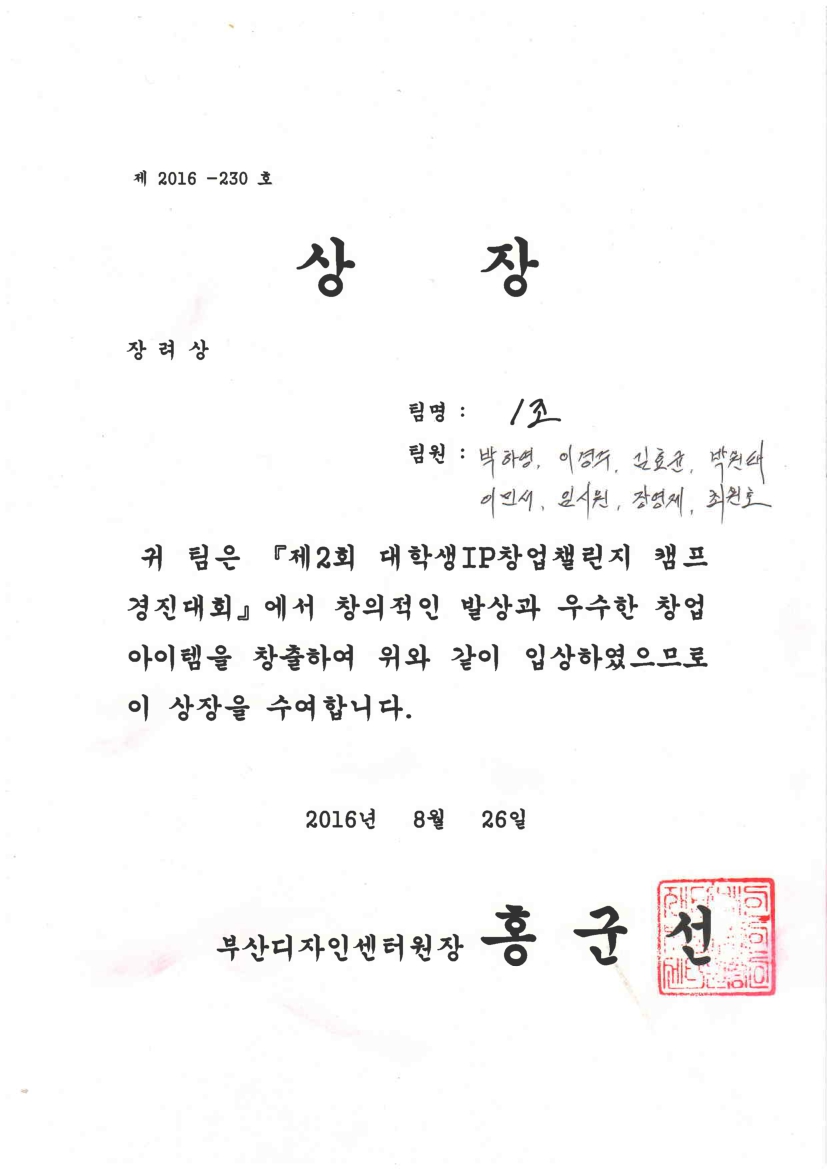 제 2016 -230 호
상 장
장 려 상
팀명 : 1조
팀원 : 박하영, 이경주, 김효균, 박원태
이민서, 임시원, 장영제, 최원호
귀 팀은 『제2회 대학생IP창업챌린지 캠프
경진대회』에서 창의적인 발상과 우수한 창업
아이템을 창출하여 위와 같이 입상하였으므로
이 상장을 수여합니다.
2016년 8월 26일
부산디자인센터원장 홍 군 선